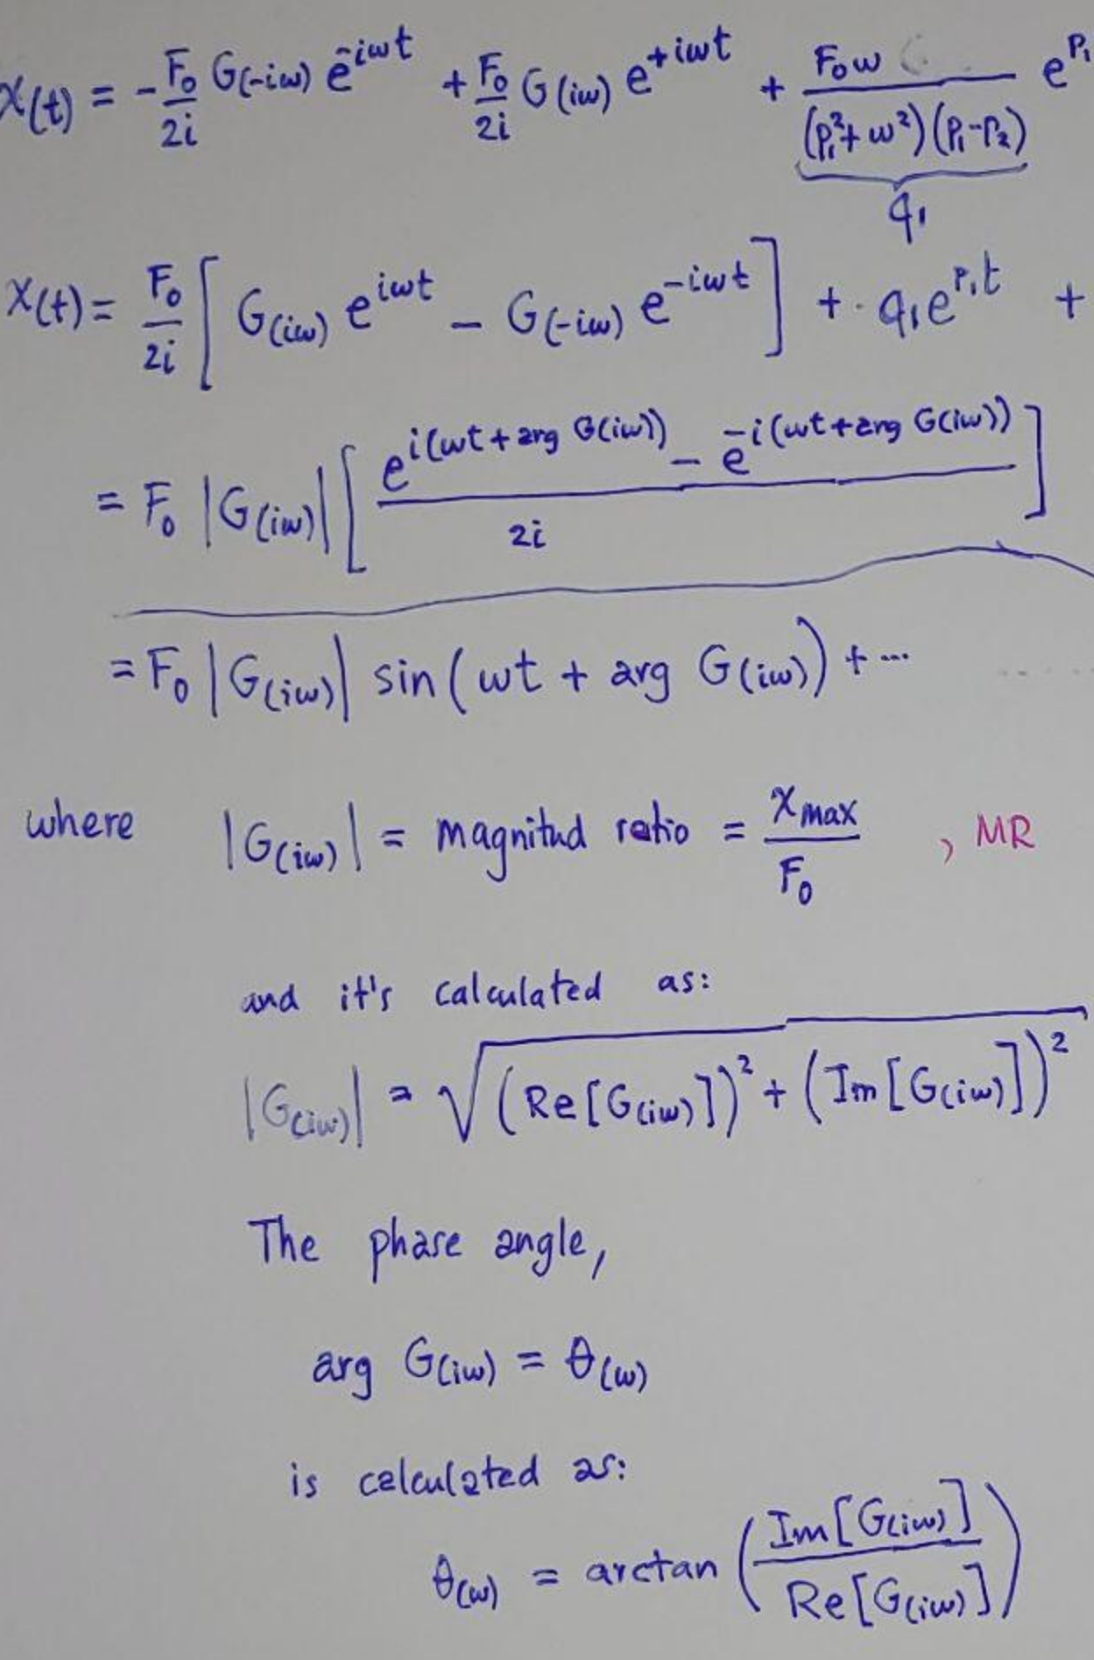 x(t) = -F₀/2i G(-iω) e^-iωt + F₀/2i G(iω) e^+iωt + F₀ω/((p₁²+ω²)(p₁-p₂)) e^p₁
q₁
x(t) = F₀/2i [G(iω) e^iωt - G(-iω) e^-iωt] + q₁e^p₁t +
= F₀ |G(iω)| [(e^i(ωt+arg G(iω)) - e^-i(ωt+arg G(iω)))/2i]
= F₀ |G(iω)| sin(ωt + arg G(iω)) + ...
where |G(iω)| = magnitud ratio = x max/F₀ , MR
and it's calculated as:
|G(iω)| = √((Re[G(iω)])² + (Im[G(iω)])²)
The phase angle,
arg G(iω) = θ(ω)
is calculated as:
θ(ω) = arctan (Im[G(iω)]/Re[G(iω)])